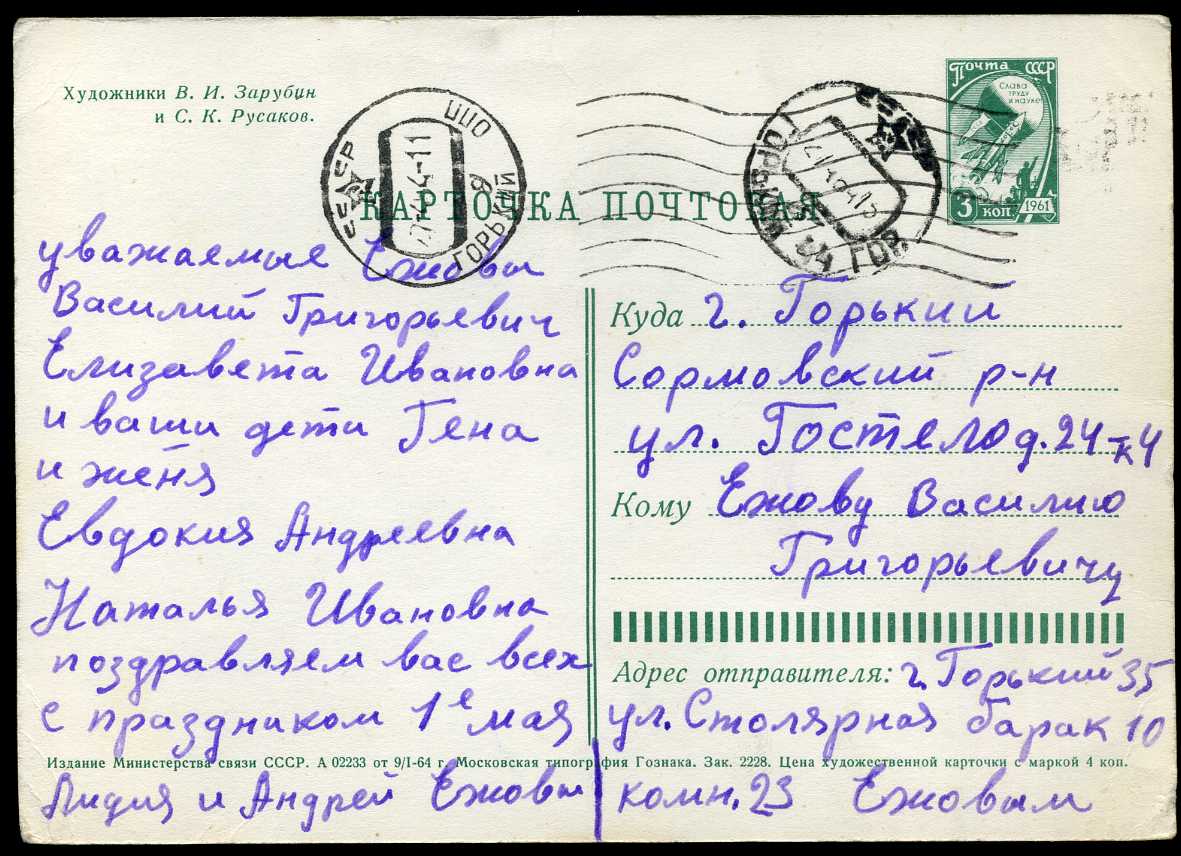 Художники В. И. Зарубин
и С. К. Русаков.
Почта СССР
Слава
труду
и науке
3 коп. 1961
СССР
ГОРЬКИЙ
КАРТОЧКА ПОЧТОВАЯ
уважаемые Ежовы
Василий Григорьевич
Елизавета Ивановна
и ваши дети Гена
и женя
Евдокия Андреевна
Наталья Ивановна
поздравляем вас всех
с праздником 1е мая
Лидия и Андрей Ежовы
Куда г. Горький
Сормовский р-н
ул. Гостело д. 24-к4
Кому Ежову Василию
Григорьевичу
Адрес отправителя: г. Горький 35
ул. Столярная барак 10
комн. 23 Ежовым
Издание Министерства связи СССР. А 02233 от 9/I-64 г. Московская типография Гознака. Зак. 2228. Цена художественной карточки с маркой 4 коп.